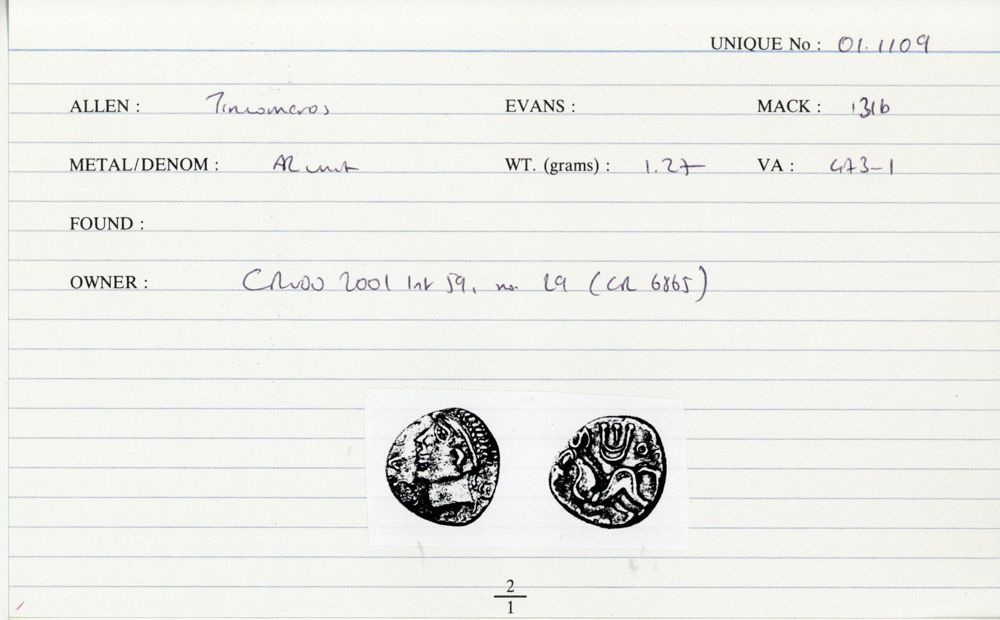 UNIQUE No : 01.1109
ALLEN : Tincomeros EVANS : MACK : 131b
METAL/DENOM : AR unit WT. (grams) : 1.27 VA : 473-1
FOUND :
OWNER : 2001 59, no. 29 (CR 6865)
2
1